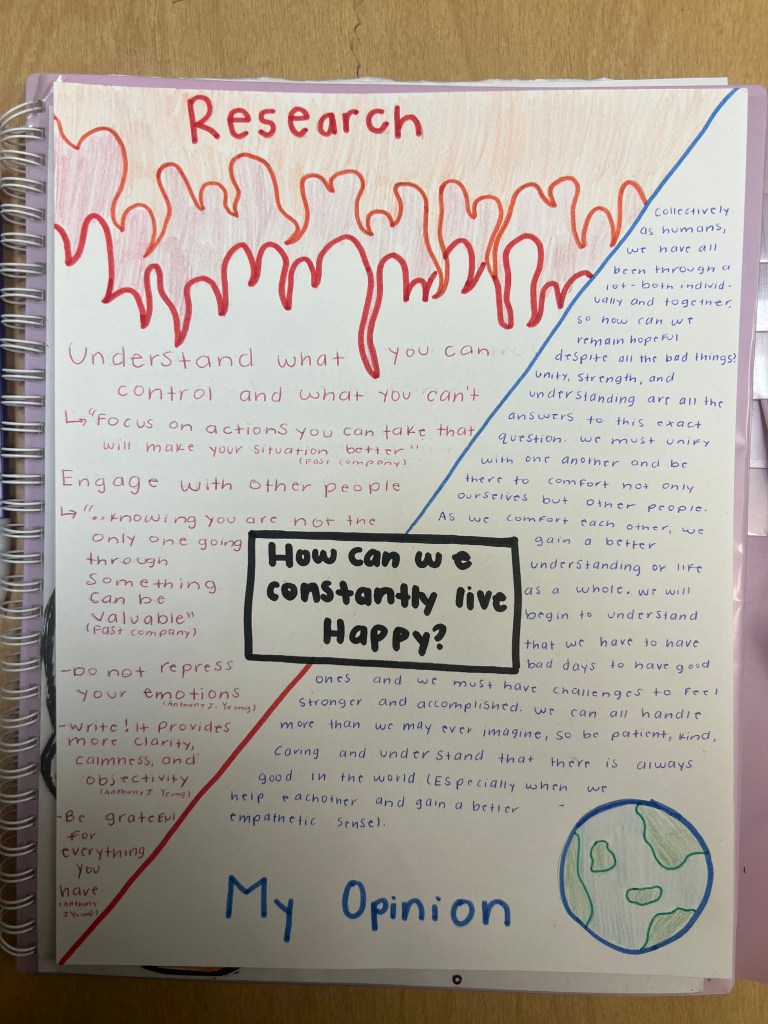 Research
Understand what you can
control and what you can't
↳"Focus on actions you can take that
will make your situation better"
(Fast company)
Engage with other people
↳"..knowing you are not the
only one going
through
something
can be
valuable"
(Fast company)
-Do not repress
your emotions
(Anthony J. Yeung)
-Write! It provides
more clarity,
calmness, and
objectivity
(Anthony J Yeung)
-Be grateful
for
everything
you
have
(Anthony
J Yeung)
How can we
constantly live
Happy?
Collectively
as humans,
we have all
been through a
lot-both individ-
ually and together.
so how can we
remain hopeful
despite all the bad things?
unity, strength, and
understanding are all the
answers to this exact
question. we must unify
with one another and be
there to comfort not only
ourselves but other people.
As we comfort each other, we
gain a better
understanding of life
as a whole. we will
begin to understand
that we have to have
bad days to have good
ones and we must have challenges to feel
stronger and accomplished. We can all handle
more than we may ever imagine, so be patient, kind,
caring and understand that there is always
good in the world (Especially when we
help eachother and gain a better
empathetic sense).
My Opinion